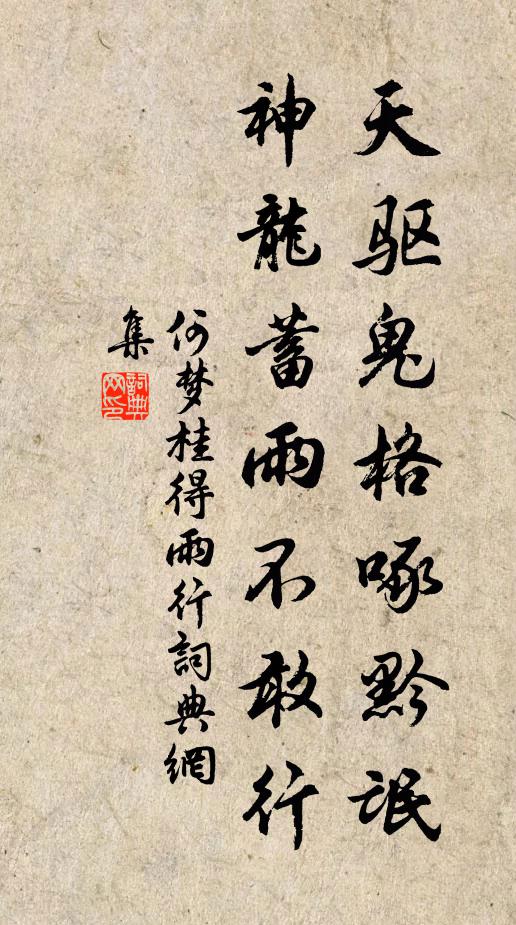 天驱鬼格啄黔氓
神龍蓄雨不敢行
何梦桂得雨行詞典網
集
詞典
网印